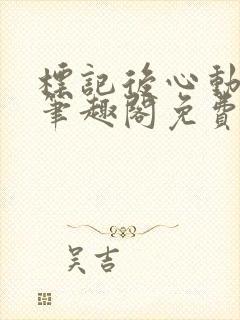 標記後心動
筆趣閣免費
吴吉